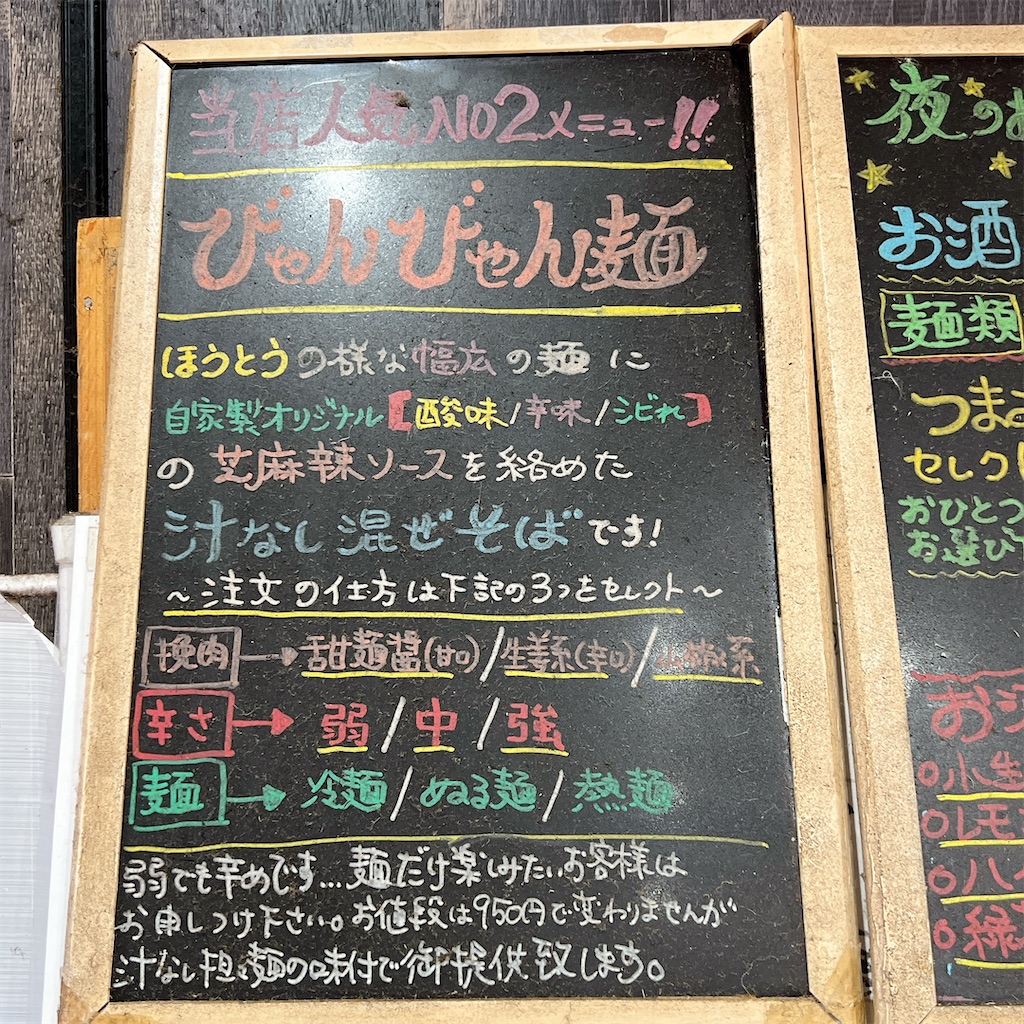 当店人気No2メニュー!!
びゃんびゃん麺
ほうとうの様な幅広の麺に
自家製オリジナル【酸味/辛味/シビれ】
の芝麻辣ソースを絡めた
汁なし混ぜそばです!
~注文の仕方は下記の3つをセレクト~
挽肉→甜麺醤(甘口)/生姜系(辛口)/
辛さ→弱/中/強
麺→冷麺/ぬる麺/熱麺
弱でも辛めです...麺だけ楽しみたいお客様は
お申しつけ下さい。お値段は950円で変わりませんが
汁なし担々麺の味付で御提供致します。
夜のお
お酒
麺類
つまみ
セレク
おひとつ
お選び
お酒
○小生
○レモ
○ハイ
○緑